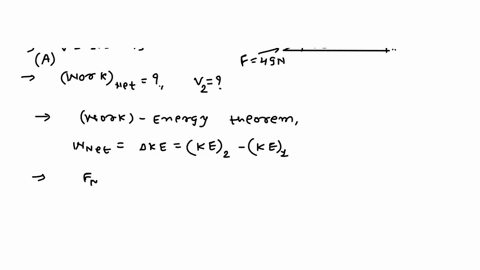 (A)
F=49N
→ (Work)Net = ?, V2=?
→ (Work) - Energy theorem,
WNet = ΔKE = (KE)2 - (KE)1
→ FN